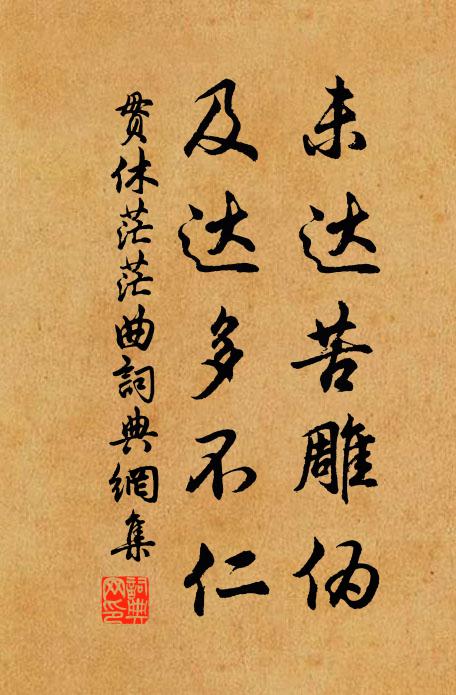 未达苦雕伪
及达多不仁
贯休茫茫曲詞典網集
詞典
网印